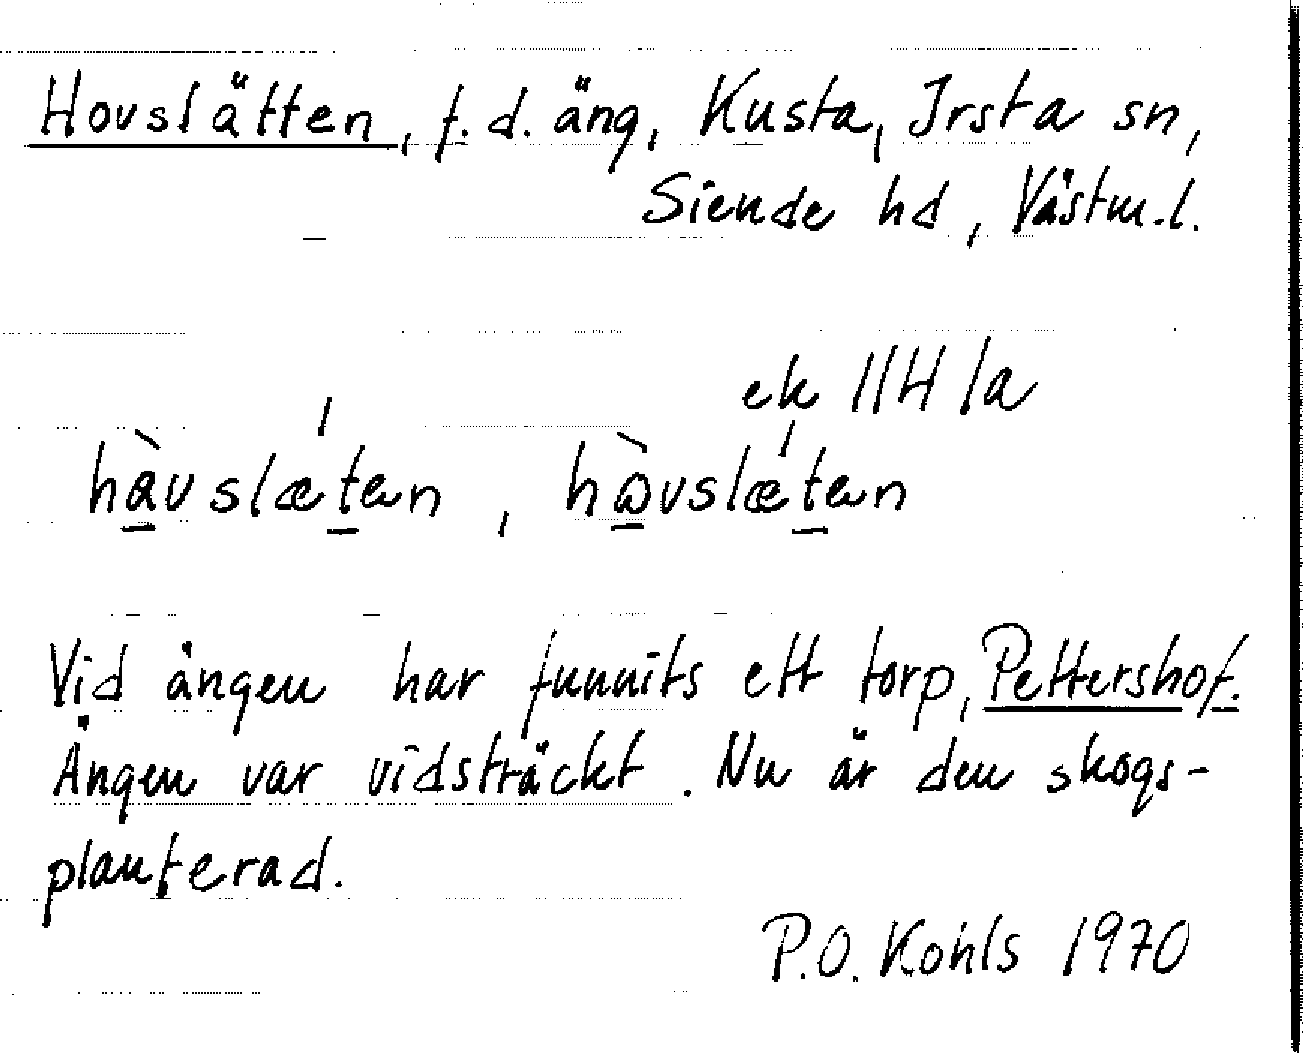 Hovslätten, f.d. äng, Kusta, Irsta sn,
Siende hd, Västm.l.
ek 11H 1a
hàvslæ´ten, hòvslæ´ten
Vid ängen har funnits ett torp, Pettershof.
Ängen var vidsträckt. Nu är den skogs-
planterad.
P.O. Kohls 1970